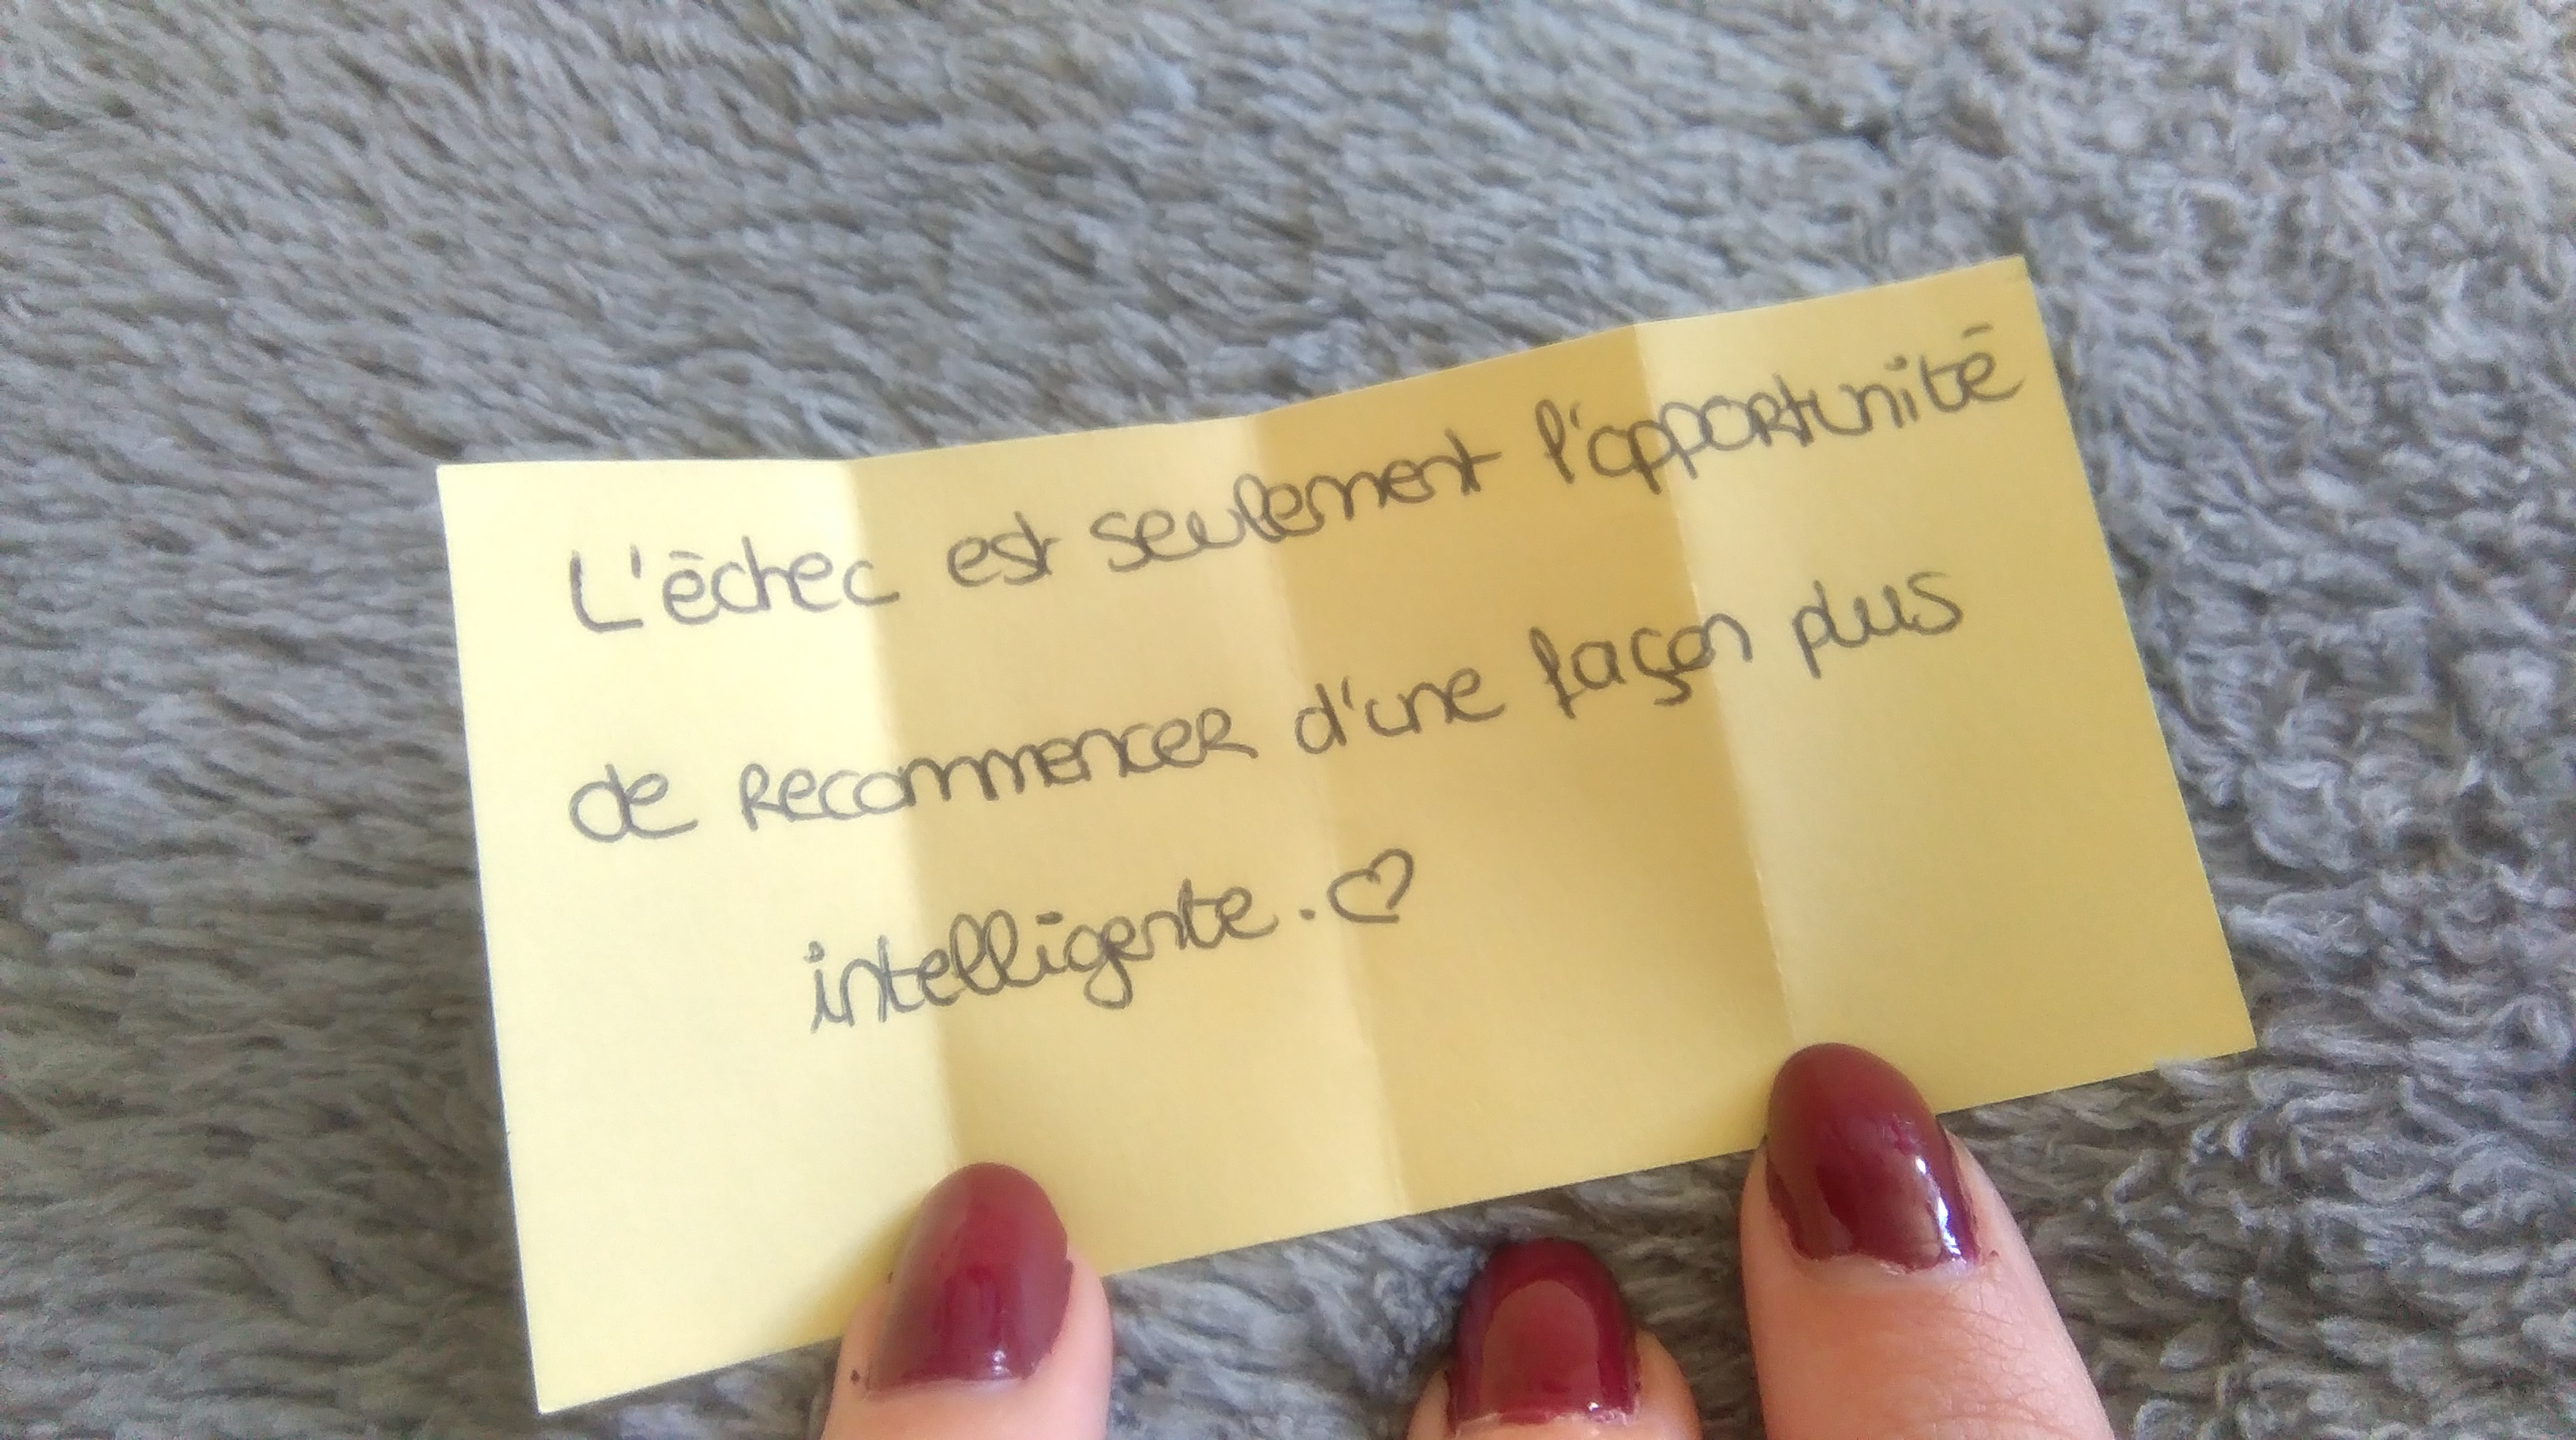 L'échec est seulement l'opportunité
de recommencer d'une façon plus
intelligente. ♡